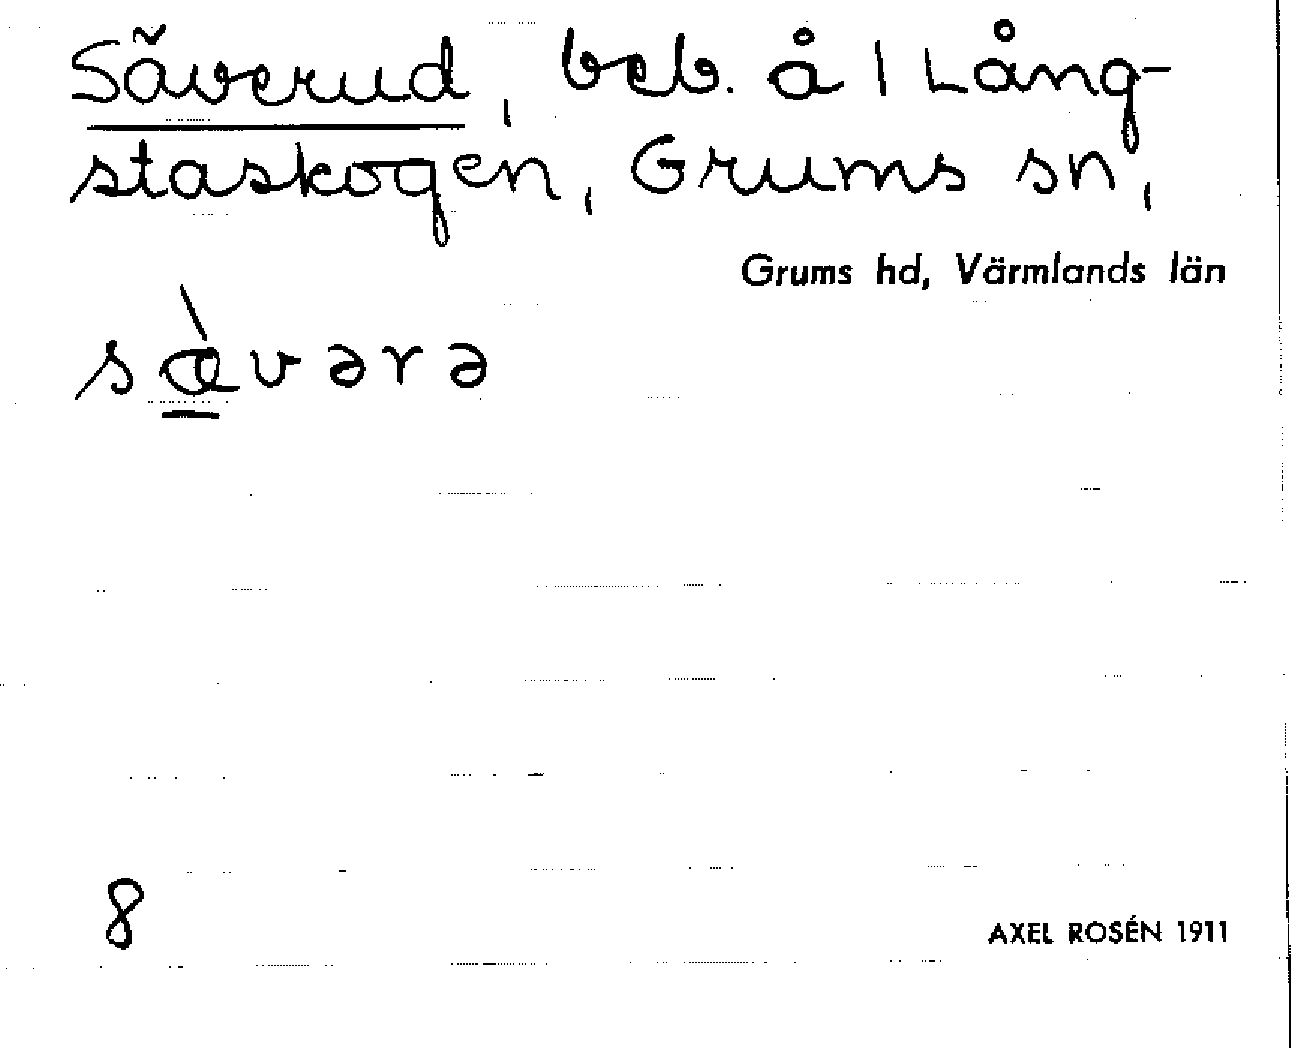 Säverud, beb. å 1 Lång-
staskogen, Grums sn,
Grums hd, Värmlands län
sæ̀vərə
8
AXEL ROSÉN 1911